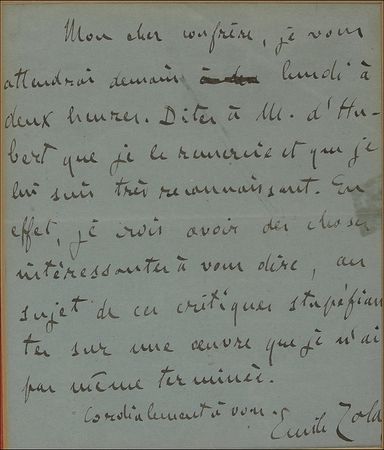 Mon cher confrère, je vous
attendrai demain lundi à
deux heures. Dites à M. d'Hu-
bert que je le remercie et que je
lui suis très reconnaissant. En
effet, je crois avoir des choses
intéressantes à vous dire, au
sujet de ces critiques stupéfian-
tes sur une œuvre que je n'ai
pas même terminée.
Cordialement à vous.
Emile Zola